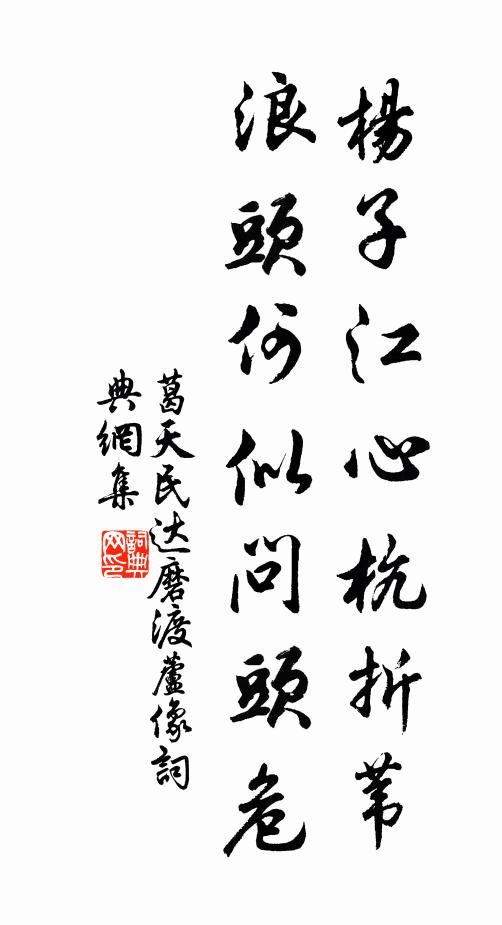 楊子江心杭折苇
浪頭何似問頭危
葛天民达磨渡蘆像詞
典網集
詞典
网印